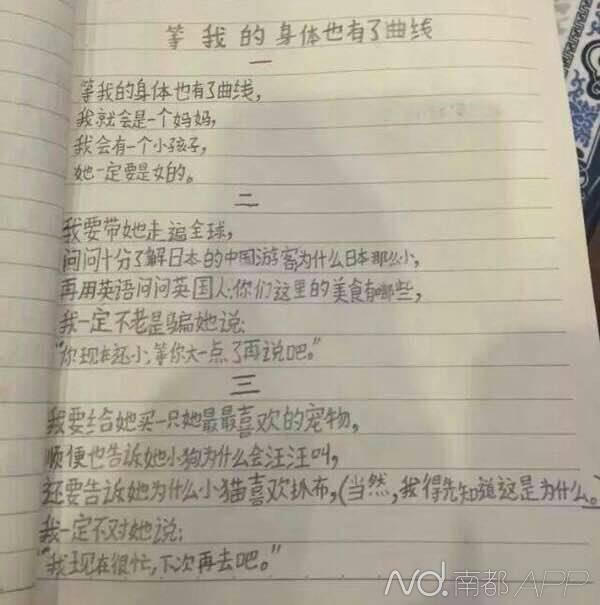 等我的身体也有了曲线
一
等我的身体也有了曲线,
我就会是一个妈妈,
我会有一个小孩子,
她一定要是女的。
二
我要带她走遍全球,
问问十分了解日本的中国游客为什么日本那么小,
再用英语问问英国人:你们这里的美食有哪些,
我一定不老是骗她说:
“你现在还小,等你大一点了再说吧。”
三
我要给她买一只她最最喜欢的宠物,
顺便也告诉她小狗为什么会汪汪叫,
还要告诉她为什么小猫喜欢抓布,(当然,我得先知道这是为什么。)
我一定不对她说:
“我现在很忙,下次再去吧。”
ND.南都APP